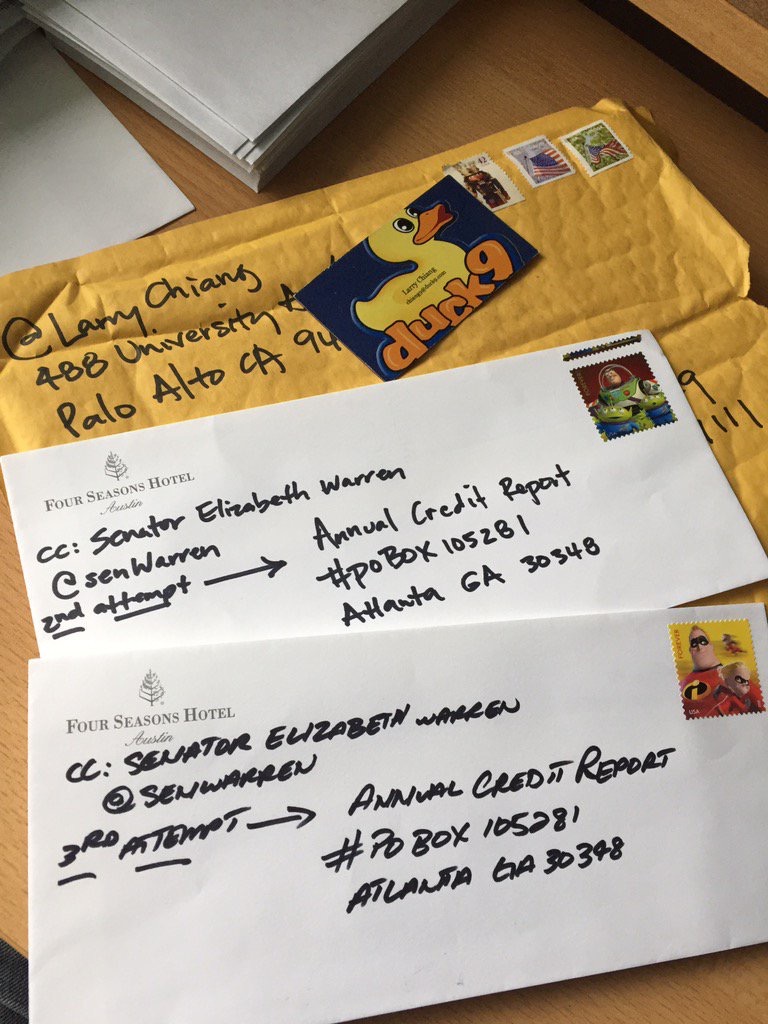 42
@Larry Chiang
488 University A
Palo Alto CA 94
Larry Chiang
chiang@duck9.com
duck9
9
1111
FOUR SEASONS HOTEL
Austin
CC: Senator Elizabeth Warren
@senWarren
2nd attempt →
Annual Credit Report
#PO BOX 105281
Atlanta GA 30348
FOUR SEASONS HOTEL
Austin
FOREVER
USA
CC: SENATOR ELIZABETH WARREN
@SENWARREN
3RD ATTEMPT →
ANNUAL CREDIT REPORT
#PO BOX 105281
ATLANTA GA 30348